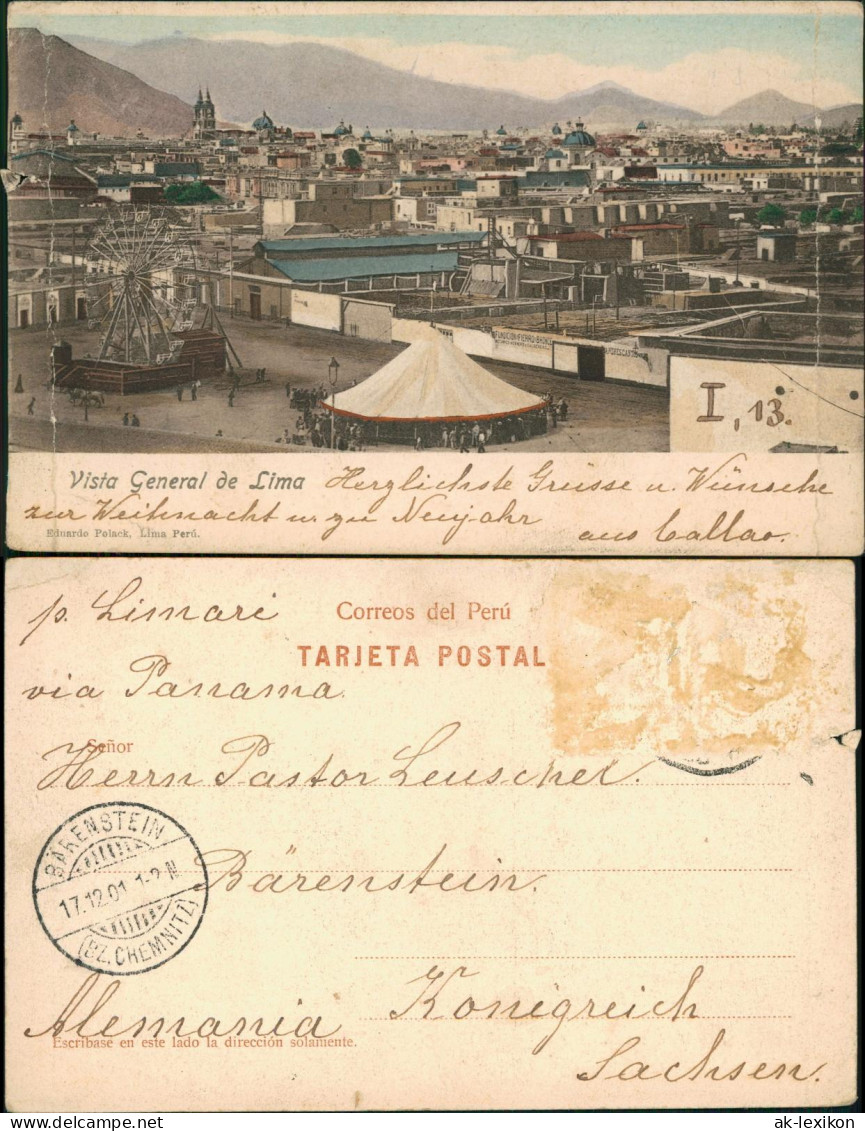 I, 13.
Vista General de Lima Herzlichste Grüsse u. Wünsche
zur Weihnacht u. zu Neujahr
Eduardo Polack, Lima Perú.
aus Callao.
p. Limari
Correos del Perú
TARJETA POSTAL
via Panama.
Señor
Herrn Pastor Leuschel.
BÄRENSTEIN
17.12.01 1-2 N
(BZ. CHEMNITZ)
Bärenstein.
Alemania Königreich
Escríbase en este lado la dirección solamente.
Sachsen.
ak-lexikon